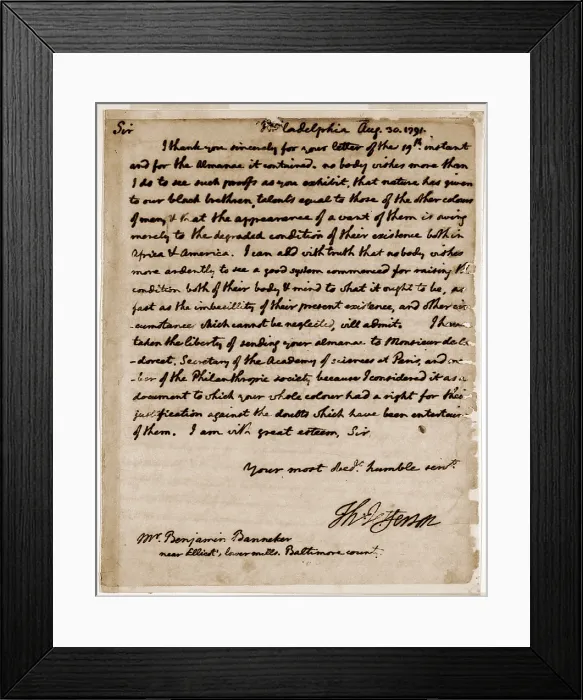 Sir Philadelphia Aug. 30. 1791.
I thank you sincerely for your letter of the 19th instant
and for the Almanac it contained. no body wishes more than
I do to see such proofs as you exhibit, that nature has given
to our black brethren, talents equal to those of the other colours
of men, & that the appearance of a want of them is owing
merely to the degraded condition of their existence both in
Africa & America. I can add with truth that no body wishes
more ardently to see a good system commenced for raising the
condition both of their body & mind to what it ought to be, as
fast as the imbecillity of their present existence, and other cir
cumstance which cannot be neglected, will admit. I have
taken the liberty of sending your almanac to Monsieur de
-dorcet, Secretary of the Academy of sciences at Paris, and
-ber of the Philanthropic society because I considered it as a
document to which your whole colour had a right for their
justification against the doubts which have been entertain
of them. I am with great esteem, Sir
Your most obedt. humble servt.
Th: Jefferson
Mr. Benjamin Banneker
near Ellicot's, lower mills. Baltimore county.